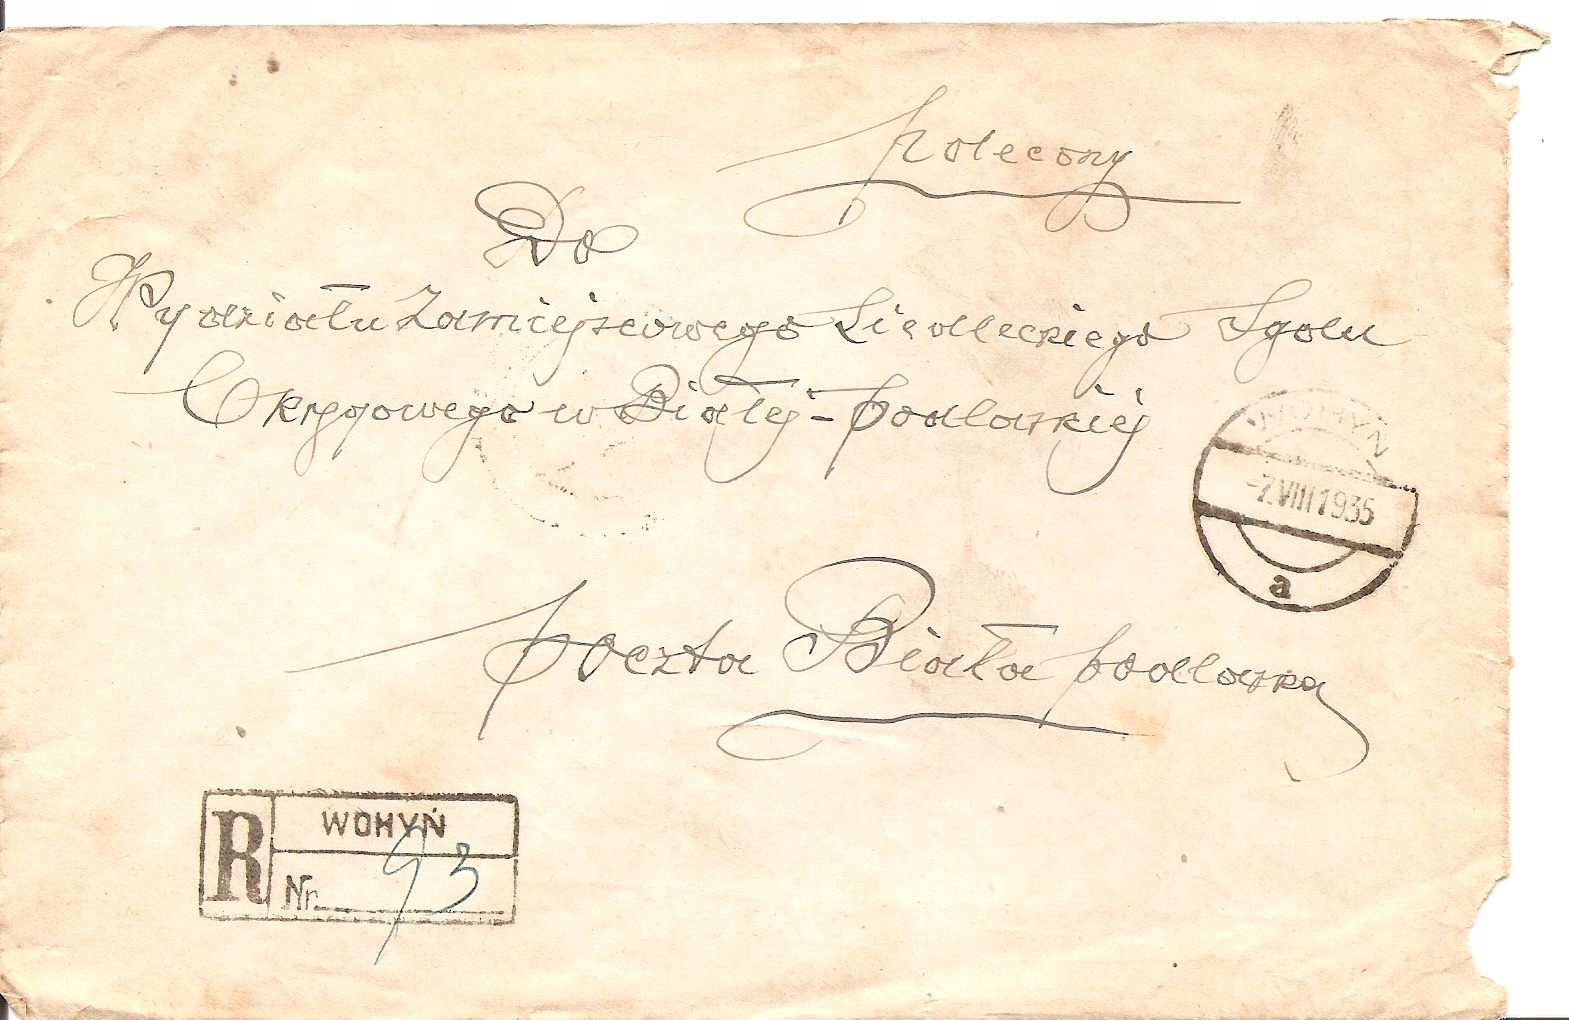 polecony
Do
Wydziału Zamiejscowego Siedleckiego Sądu
Okręgowego w Białej-Podlaskiej
WOHYŃ
-7.VIII 1935
a
poczta Biała podlaska
R
WOHYŃ
Nr. 93